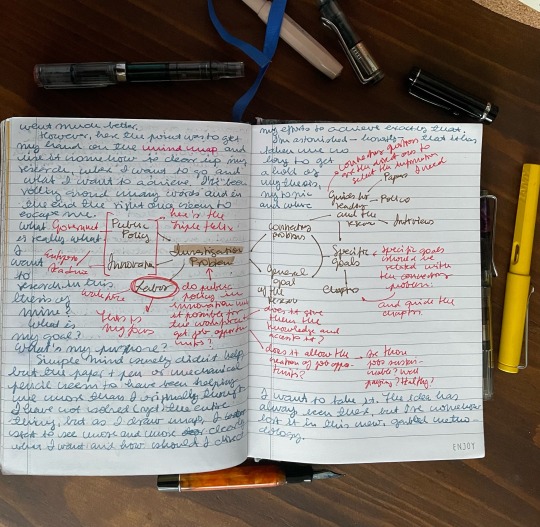 went much better.
However, here the point was to get
my hand on the mind map and
use it somehow to clear up my
research, where I want to go and
what I want to achieve. I've been
around many words and in
the end the right one seem to
escape me.
What
is really what
I
want
to
research in this
thesis of
mine?
what is
my goal?
What's my purpose?
Government
Public
Policy
here is the
triple helix
Innovation
Investigation
Problem
Labor
workforce
This is
my focus
do public
policy in
innovation make
it possible for
the workforce
get job opportu
nities?
Simple Mind surely didn't help,
but the paper + pen or mechanical
pencil seem to have been helping
me more than I originally thought.
I have not solved (yet) the entire
thing, but as I draw maps, I
start to see more and more clearly
what I want and how should I direct
my efforts to achieve exactly that.
I'm astonished - honestly that it has
taken me so
long to get
a hold of
my thesis,
my topic
and where
connecting question
set the direction to
select the information
I need
Papers
Guides the
reading
Politics
and the
Interviews
connecting
problems
Specific
goals
Specific goals
should be
related with
the connecting
problem.
General
goal
of the
Chapters
and guide the
chapters.
does it give
them the
knowledge and
access to it?
does it allow the
creation of job oppor
tunities?
Are these
jobs sustai-
nable? Well
paying? Healthy?
I want to take it. The idea has
always been there, but I've somehow
lost it in this mess, garbled metho-
dology.
ENJOY